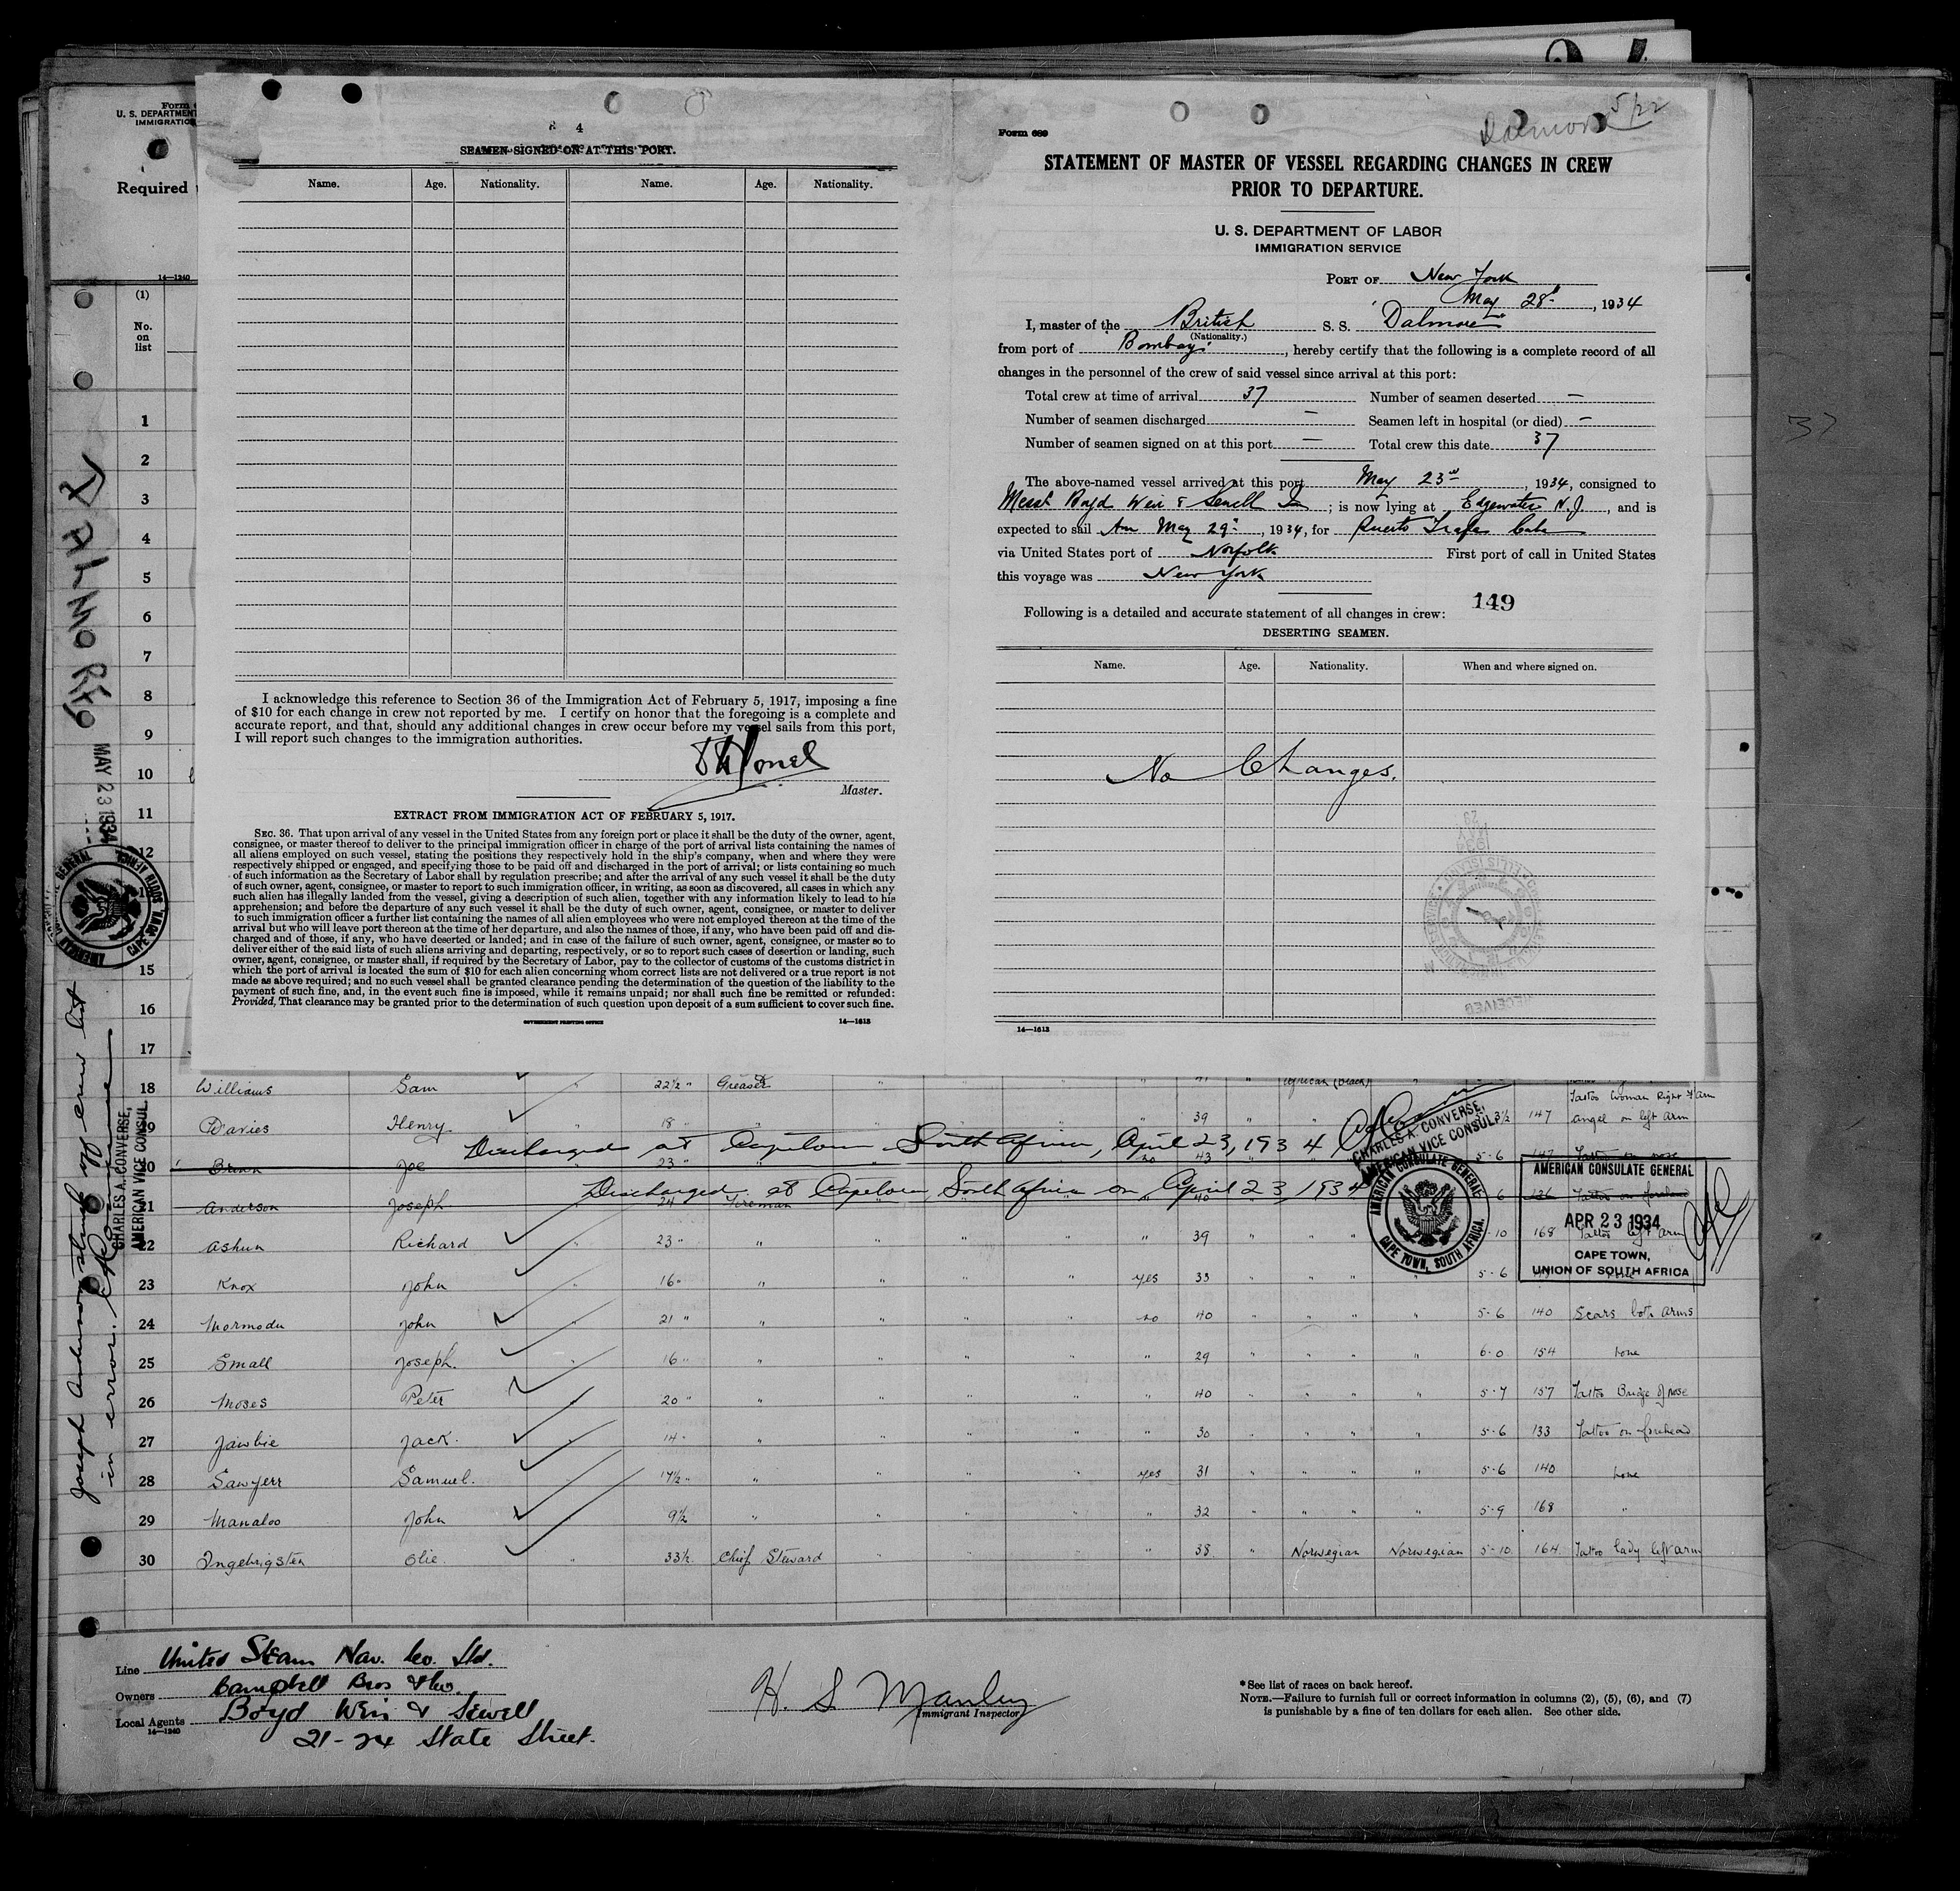 Form
U. S. DEPARTMENT
IMMIGRATIO
Required
14—1240
(1)
No.
on
list
1
2
3
4
5
6
7
8
9
10
11
12
15
16
17
MAY 23 1934
AMERICAN CONSULATE GENERAL
CAPE TOWN, SOUTH AFRICA
Joseph Anderson struck off crew list
in error.
CHARLES A. CONVERSE,
AMERICAN VICE CONSUL
4
SEAMEN SIGNED ON AT THIS PORT.
Name. Age. Nationality. Name. Age. Nationality.
I acknowledge this reference to Section 36 of the Immigration Act of February 5, 1917, imposing a fine
of $10 for each change in crew not reported by me. I certify on honor that the foregoing is a complete and
accurate report, and that, should any additional changes in crew occur before my vessel sails from this port,
I will report such changes to the immigration authorities.
Master.
EXTRACT FROM IMMIGRATION ACT OF FEBRUARY 5, 1917.
SEC. 36. That upon arrival of any vessel in the United States from any foreign port or place it shall be the duty of the owner, agent,
consignee, or master thereof to deliver to the principal immigration officer in charge of the port of arrival lists containing the names of
all aliens employed on such vessel, stating the positions they respectively hold in the ship's company, when and where they were
respectively shipped or engaged, and specifying those to be paid off and discharged in the port of arrival; or lists containing so much
of such information as the Secretary of Labor shall by regulation prescribe; and after the arrival of any such vessel it shall be the duty
of such owner, agent, consignee, or master to report to such immigration officer, in writing, as soon as discovered, all cases in which any
such alien has illegally landed from the vessel, giving a description of such alien, together with any information likely to lead to his
apprehension; and before the departure of any such vessel it shall be the duty of such owner, agent, consignee, or master to deliver
to such immigration officer a further list containing the names of all alien employees who were not employed thereon at the time of the
arrival but who will leave port thereon at the time of her departure, and also the names of those, if any, who have been paid off and dis-
charged and of those, if any, who have deserted or landed; and in case of the failure of such owner, agent, consignee, or master so to
deliver either of the said lists of such aliens arriving and departing, respectively, or so to report such cases of desertion or landing, such
owner, agent, consignee, or master shall, if required by the Secretary of Labor, pay to the collector of customs of the customs district in
which the port of arrival is located the sum of $10 for each alien concerning whom correct lists are not delivered or a true report is not
made as above required; and no such vessel shall be granted clearance pending the determination of the question of the liability to the
payment of such fine, and, in the event such fine is imposed, while it remains unpaid; nor shall such fine be remitted or refunded:
Provided, That clearance may be granted prior to the determination of such question upon deposit of a sum sufficient to cover such fine.
GOVERNMENT PRINTING OFFICE 14—1613
Form 689
Dalmore
STATEMENT OF MASTER OF VESSEL REGARDING CHANGES IN CREW
PRIOR TO DEPARTURE.
U. S. DEPARTMENT OF LABOR
IMMIGRATION SERVICE
PORT OF New York
May 28, 1934
I, master of the British S. S. Dalmore
(Nationality.)
from port of Bombay, hereby certify that the following is a complete record of all
changes in the personnel of the crew of said vessel since arrival at this port:
Total crew at time of arrival 37 Number of seamen deserted —
Number of seamen discharged — Seamen left in hospital (or died) —
Number of seamen signed on at this port — Total crew this date 37
The above-named vessel arrived at this port May 23rd, 1934, consigned to
Messrs Boyd Weir & Sewell ; is now lying at Edgewater N.J., and is
expected to sail Am May 29, 1934, for Puerto Cuba
via United States port of Norfolk First port of call in United States
this voyage was New York
149
Following is a detailed and accurate statement of all changes in crew:
DESERTING SEAMEN.
Name. Age. Nationality. When and where signed on.
No Changes.
14—1613
37
18 Williams Sam 22½ " Greaser African (black)
Tattoo Woman Right F Arm
19 Davies Henry 18 " 39 3½ 147 angel on left arm
Discharged at Capetown South Africa, April 23, 1934
20 Brown Joe 23 " no 43 5-6 147 Tattoo on nose
Discharged at Capetown, South Africa on April 23 1934
21 Anderson Joseph 24 Fireman 40 6 136 Tattoo on forehead
22 Ashun Richard 23 " " 39 10 168 Tattoo left arm
23 Knox John 16 " " yes 33 5-6
24 Mormodu John 21 " " no 40 5-6 140 Scars both arms
25 Small Joseph. 16 " " 29 6-0 154 none
26 Moses Peter 20 " " 40 5-7 157 Tattoo Bridge of nose
27 Jawbie Jack. 14 " " 30 5-6 133 Tattoo on forehead
28 Sawyerr Samuel. 17½ " " yes 31 5-6 140 none
29 Manaloo John 9½ " 32 5-9 168 "
30 Ingebrigsten Olie. 33½ Chief Steward 38 " Norwegian Norwegian 5-10 164 Tattoo lady left arm
CHARLES A. CONVERSE,
AMERICAN VICE CONSUL
AMERICAN CONSULATE GENERAL
CAPE TOWN, SOUTH AFRICA
AMERICAN CONSULATE GENERAL
APR 23 1934
CAPE TOWN,
UNION OF SOUTH AFRICA
Line United Steam Nav. Co. Ltd.
Owners Campbell Bros & Co.
Local Agents Boyd Weir & Sewell
14—1240
21-24 State Street.
H. S Manley
Immigrant Inspector
*See list of races on back hereof.
NOTE.—Failure to furnish full or correct information in columns (2), (5), (6), and (7)
is punishable by a fine of ten dollars for each alien. See other side.